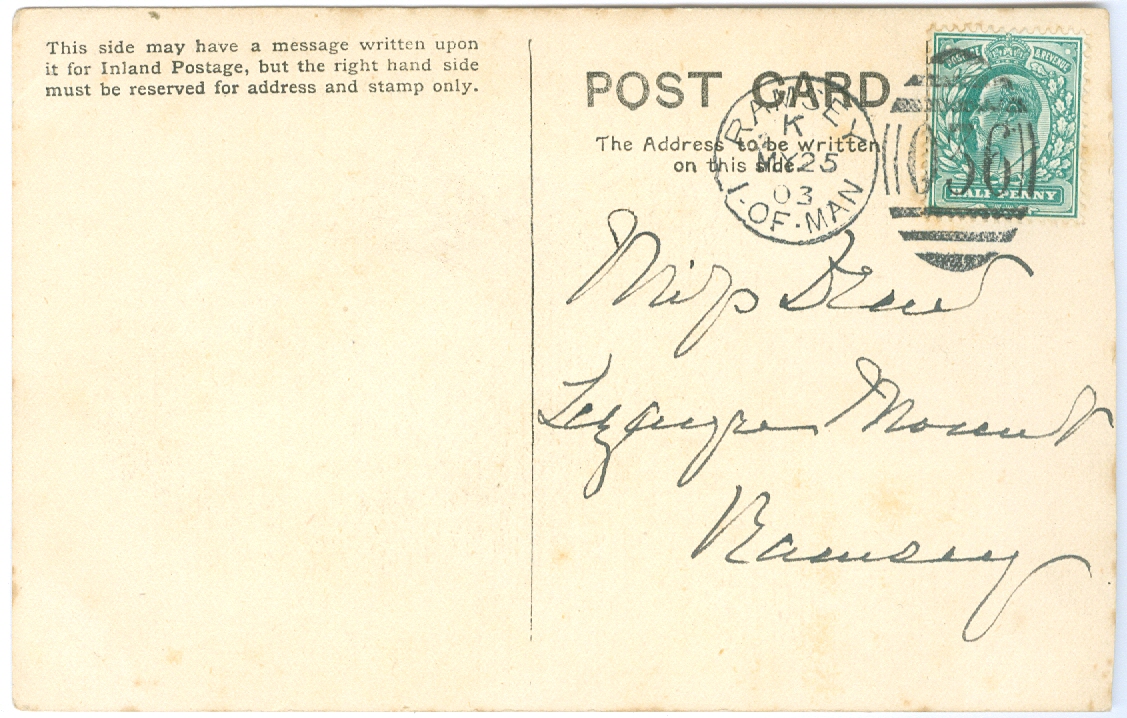 This side may have a message written upon
it for Inland Postage, but the right hand side
must be reserved for address and stamp only.
POST CARD
The Address to be written
on this side.
RAMSEY
K
MY 25
03
I·OF·MAN
POSTAGE & REVENUE
HALF PENNY
Miss Drew
Lezayre Mount
Ramsey